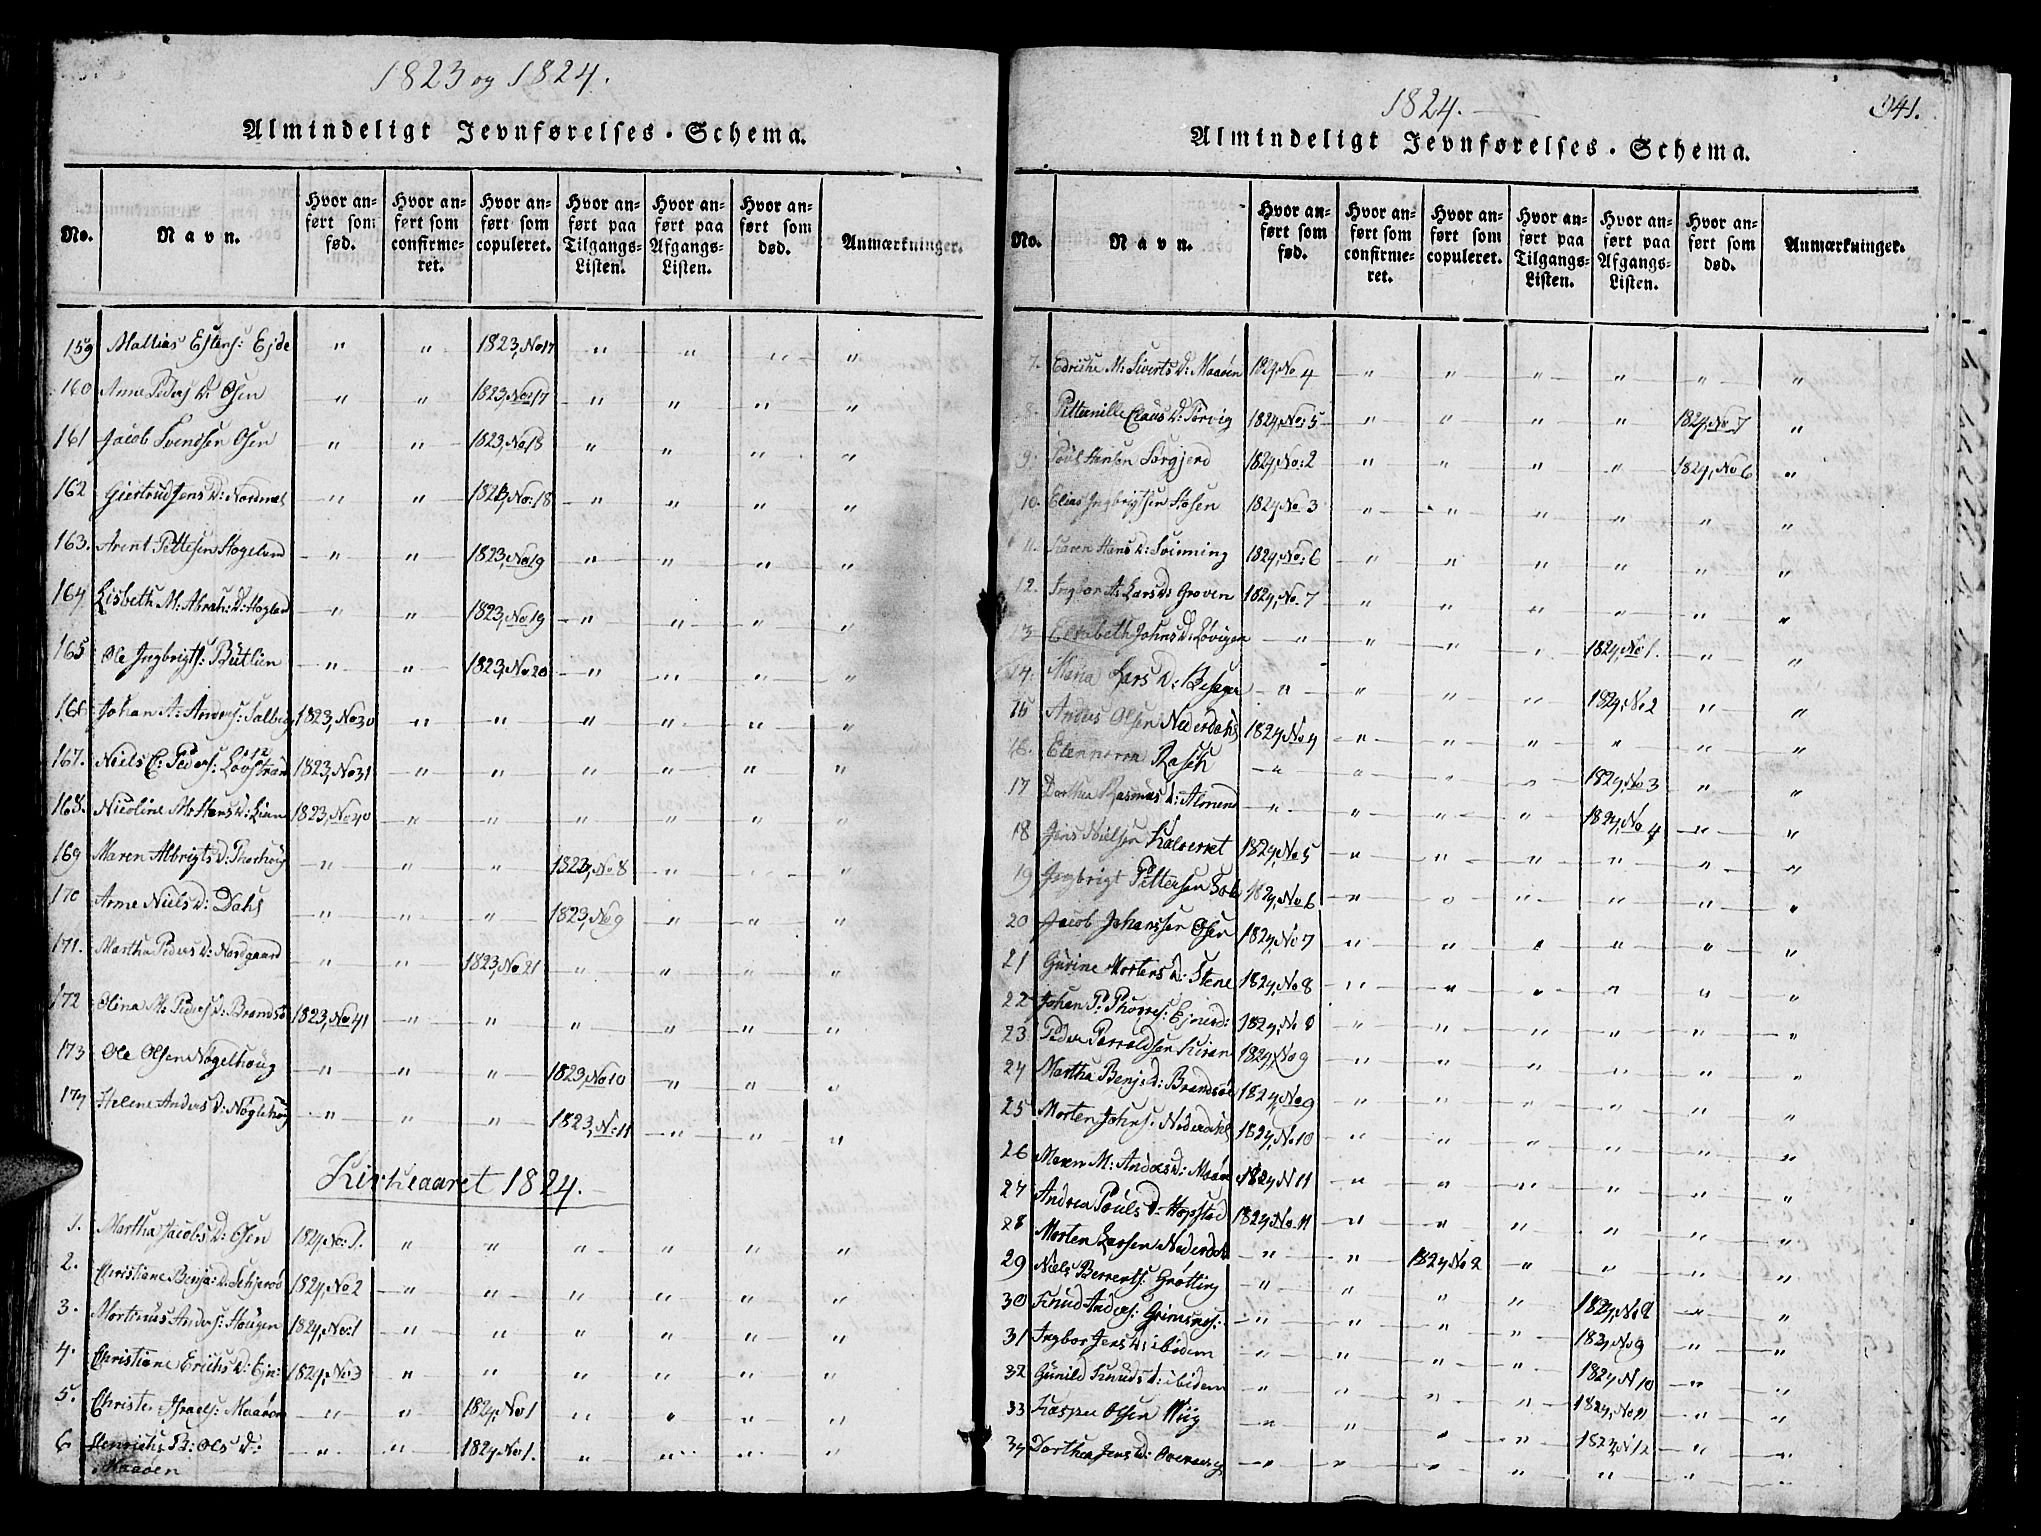 1823 og 1824.
Almindeligt Jevnførelses-Schema.
No. Navn. Hvor anført som fød. Hvor anført som confirmeret. Hvor anført som copuleret. Hvor anført paa Tilgangs-Listen. Hvor anført paa Afgangs-Listen. Hvor anført som død. Anmærkninger.
159 Mattias Estens: Ejde " " 1823, No 17 " " " "
160 Anne Peders D: Osen " " 1823, No 17 " " " "
161 Jacob Svendsen Osen " " 1823, No 18 " " " "
162 Giertrud Jens D: Nordmel " " 1823, No: 18 " " " "
163. Arent Pettersen Hogeland " " 1823, No 19 " " " "
164 Lisbeth M: Abrah: D: Hogland " " 1823, No 19 " " " "
165 Ole Ingbrigts: Butlien " " 1823, No 20 " " " "
166 Johan A: Anders: Salberg 1823, No 30 " " " " " "
167. Niels C: Peders: Løvstrand 1823, No 31 " " " " " "
168. Nicoline M: Hans D: Lien 1823, No 40 " " " " " "
169 Maren Albrigts D: Thorhoug " " " 1823, No 8 " " "
170 Anne Niels D: Dahl " " " 1823, No 9 " " "
171. Martha Peders D: Nordgaard " " 1823, No 21 " " " "
172 Olina M: Peders D: Brandsø 1823, No 41 " " " " " "
173 Ole Olsen Nøgelhoug " " " 1823, No 10 " " "
174 Helene Anders D: Nøglehoug " " " 1823, No: 11 " " "
Kirkeaaret 1824.
1. Martha Jacobs D: Osen 1824 No: 1. " " " " " "
2. Christiane Benja: D: Schjervø 1824, No 2 " " " " " "
3. Mortinus Anders: Hougen 1824, No: 1 " " " " " "
4. Christiane Erichs D: Ejn: 1824, No 3 " " " " " "
5. Christe. Israels: Maaøen " " 1824, No 1 " " " "
6 Henrichs B: Ols D: " " 1824 No 1. " " " "
Maaøen
1824.
941.
Almindeligt Jevnførelses-Schema.
No. Navn. Hvor anført som fød. Hvor anført som confirmeret. Hvor anført som copuleret. Hvor anført paa Tilgangs-Listen. Hvor anført paa Afgangs-Listen. Hvor anført som død. Anmærkninger.
7. M: Siverts D: Maaøen 1824 No 4 " " " " " "
8. Petternille Claus D: Torvig 1824, No: 5 " " " " 1824, No 7 "
9. Poul Hansen Sørgjerd 1824, No: 2 " " " " 1824, No 6 "
10. Elias Ingbrigtsen Høsen 1824 No 3 " " " " " "
11. Karen Hans D: Svinning 1824, No: 6 " " " " " "
12. Ingbor A: Lars D: Groven 1824, No. 7 " " " " " "
13 Elisabeth Johns D: Løvigen " " " " 1824, No 1. " "
14. Maria Lars D: Besager " " " " 1824, No 2 " "
15 Anders Olsen Nederdahl 1824 No 4 " " " " " "
16. Rasch " " " " 1824, No 3 " "
17 Dorthea Rasmus D: Almend " " " " 1824, No 4 " "
18 Jens Nielsen Kalverret 1824, No 5 " " " " " "
19 Ingbrigt Pettersen 1824, No 6 " " " " " "
20 Jacob Johanssen Osen 1824, No 7 " " " " " "
21 Gurine Mortens D: Stene 1824, No 8 " " " " " "
22 Johan P: Thorres: Ejnerd: 1824, No 8 " " " " " "
23 Peder Parraldsen Kiran 1824, No 9 " " " " " "
24 Martha Benjs D: Brandsøe 1824, No 9 " " " " " "
25 Morten Johns: Nederdahl 1824, No 10 " " " " " "
26 Maren M: Anders D: Maaøen 1824 N 11 " " " " " "
27 Andrea Pouls D: Hopstad 1824, No. 11 " " " " " "
28 Morten Larsen Nederdahl " " 1824 No 2 " " " "
29 Niels Berrents: Grøtting " " " " 1824, No 8 " "
30 Knud Anders: Grimsnes: " " " " 1824, No 9 " "
31 Ingbor Jens D: ibidem " " " " 1824 N 10 " "
32 Gunild Knuds D: ibidem " " " " 1824, No 11 " "
33 Kasper Olsen Wiig " " " " 1823, N 12 " "
34 Dorthea Jens D: " " " " " " "